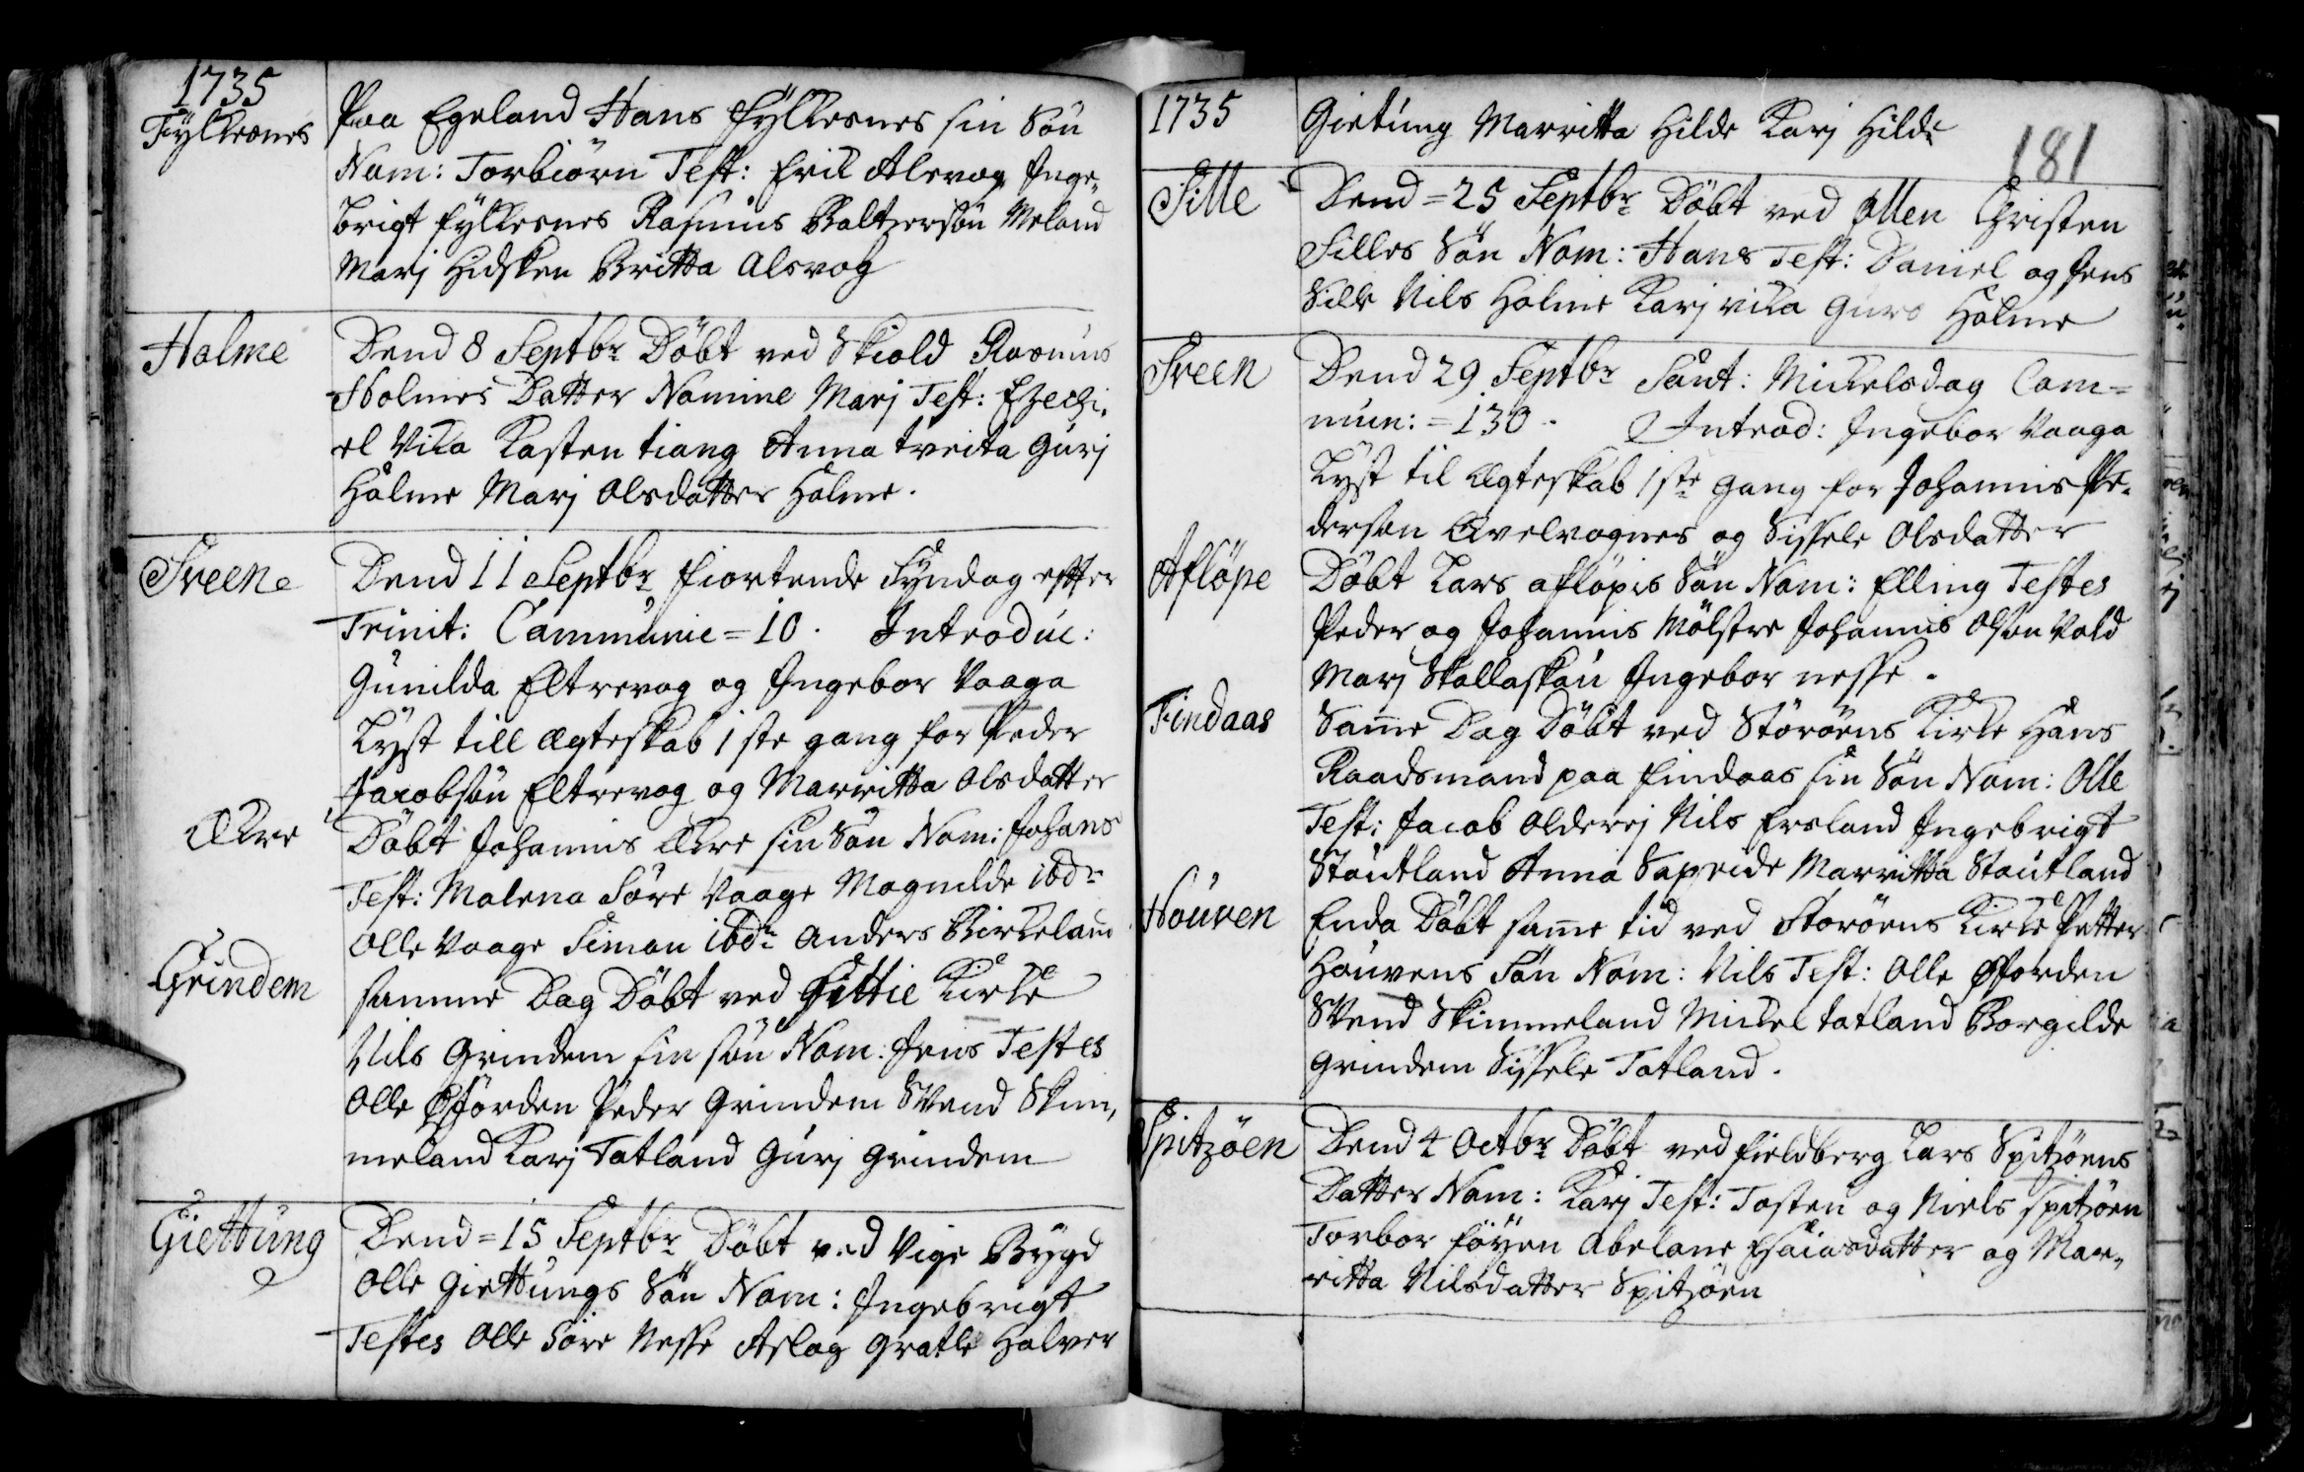 1735
Fylkesnes
Paa Egeland Hans Fylkesnes sin Sön
Nom: Torbiörn Test: Erik Alsvog Inge,,
brigt Fylkesnes Rasmus Baltzersön Meland
Marj Hidsken Britta Alsvog
Halme
Dend 8 Septbr Döbt ved Skiold Rasmus
Holmes Datter Nomine Marj Test: Ezechi,
el Vika Kasten tiang Anna tveita Gurj
Holme Marj Olsdatter Holme.
Sveene
Dend 11 Septbr fiortende Syndag efter
Trinit: Communic = 10. Introduc:
Gunilda Eltrevog og Ingebor Vaaga
Lyst till Ægteskab 1ste gang for Peder
Jacobsön Eltrevog og Marritta Olsdatter
Økre
Döbt Johannis Økre sin Sön Nom: Johans
Test: Malena Söre Vaage Magnilde ibdm
Olle Vaage Simon ibdm Anders Birkeland
Grindem
samme Dag Döbt ved Gittie Kirke
Nils Grindem sin sön Nom: Jens Testes
Olle Øfförden Peder Grindem Svend Skim,
meland Karj Tatland Gurj Grindem
Giettung
Dend = 15 Septbr Döbt ved Vige Bygd
Olle Giettungs Sön Nom: Ingebrigt
Testes Olle Söre Nesse Aslag Gratle Halver
1735
181
Gietung Marritta Hilde Karj Hilde
Sille
Dend = 25 Septbr Döbt ved Ølen Christen
Silles Sön Nom: Hans Test: Daniel og Jens
Sille Nils Holme Karj vika Guro Holme
Sveen
Dend 29 Septbr Sanct: Mickelsdag Com=
mun: = 130. Introd: Ingebor Vaaga
Lyst til Ægteskab 1ste Gang for Johannis Pe,
dersön Qvelvognes og Sissele Olsdatter
Aflöpe
Döbt Lars aflöpis Sön Nom: Elling Testes
Peder og Johannis Mölstre Johannis Olsön Vold
Marj Skallaskau Ingebor nesse.
Findaas
Same Dag Döbt ved Störöens Kirke Hans
Raadsmand paa Findaas sin Sön Nom: Olle
Test: Jacob Olderej Nils Ersland Ingebrigt
Stautland Anna Sapreide Marritta Stautland
Houven
Enda Döbt same tid ved Storöens Kirke Petter
Houvens Sön Nom: Nils Test: Olle Øfforden
Svend Skimmeland Mickel tatland Borgilde
Grindem Sissele Tatland.
Spitzöen
Dend 4 Octbr Döbt ved Fieldberg Lars Spitzöens
Datter Nom: Karj Test: Tosten og Niels Spitzöen
Torbor Föyen Abelone Esaiasdatter og Mar,,
ritta Nilsdatter Spitzöen